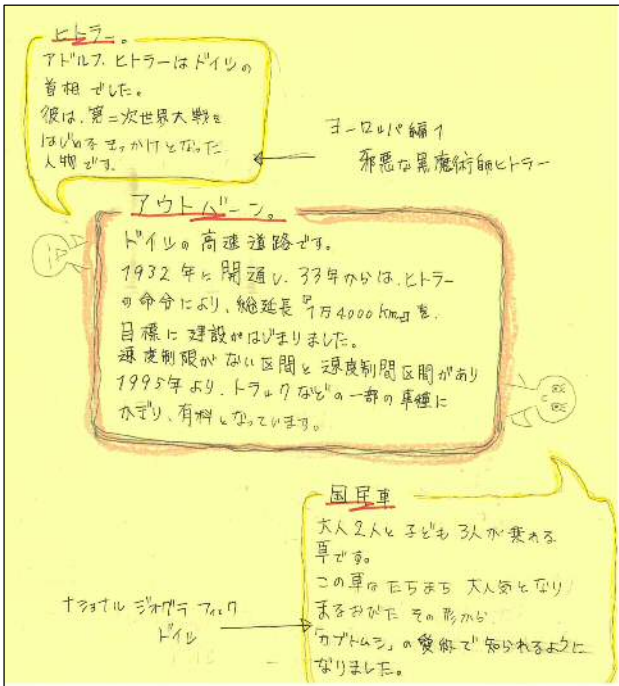 ヒトラー。
アドルフ.ヒトラーはドイツの
首相でした。
彼は、第二次世界大戦を
はじめるきっかけとなった
人物です。
ヨーロッパ編1
邪悪な黒魔術師ヒトラー
アウトバーン。
ドイツの高速道路です。
1932年に開通し、33年からは、ヒトラー
の命令により、総延長『1万4000km』を、
目標に建設がはじまりました。
速度制限がない区間と速度制間区間があり
1995年より、トラックなどの一部の車種に
かぎり、有料となっています。
国民車
大人2人と子ども3人が乗れる
車です。
この車はたちまち大人気となり
まるおびたその形から
「カブトムシ」の愛称で知られるように
なりました。
ナショナル ジオグラフィック
ドイツ